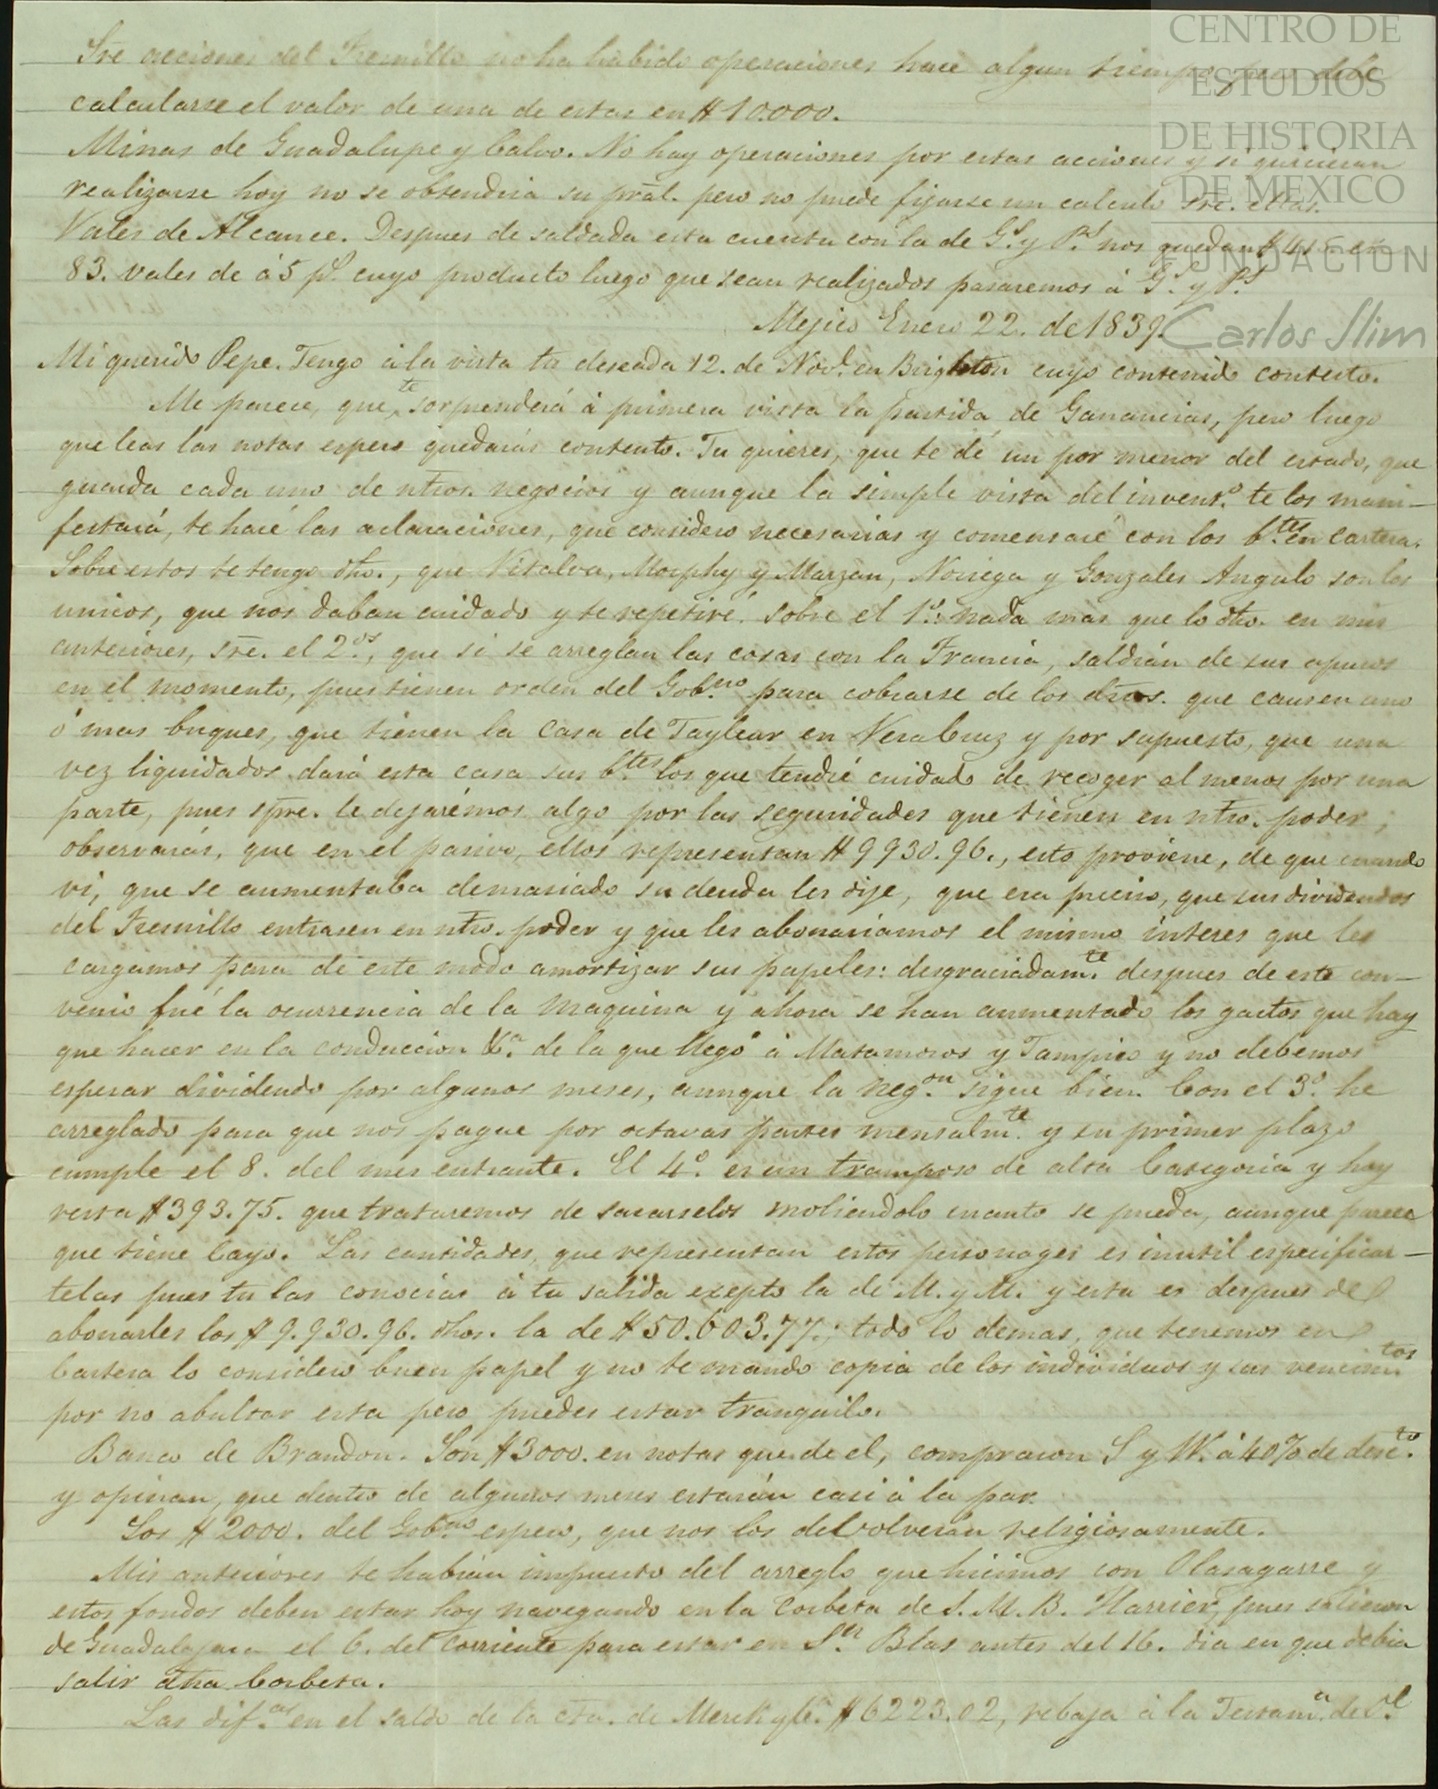 Sre acciones del Fresnillo no ha habido operaciones hace algun tiempo, pero debe
calcularse el valor de una de estas en $10.000.
Minas de Guadalupe y Calvo. No hay operaciones por estas acciones y si quisieran
realizarse hoy no se obtendria su pral. pero no puede fijarse un calculo sre. ellas.
Vales de Alcance. Despues de saldada esta cuenta con la de Gs. y Ps. nos quedan en
83. vales de á 5 ps. cuyo producto luego que sean realizados pasaremos á Gs. y Ps.
Mejico Enero 22. de 1839.
Mi querido Pepe. Tengo á la vista tu deseada 12. de Nove. en Brighton cuyo contenido contesto.
Me parece, que te sorprenderá á primera vista la partida de Ganancias, pero luego
que leas las notas espero quedarás contento. Tu quieres, que te dé un por menor del estado, que
guarda cada uno de ntros. negocios y aunque la simple vista del inventº. te los mani-
festará, te haré las aclaraciones, que considero necesarias y comensaré con los btes. en Cartera.
Sobre estos te tengo dho., que Vitalva, Morphy y Marzan, Noriega y Gonzales Angulo son los
unicos, que nos daban cuidado y te repetiré. Sobre el 1º. nada mas que lo dho. en mis
anteriores, sre. el 2os., que si se arreglan las cosas con la Francia, saldrán de sus apuros
en el momento, pues tienen orden del Gobno. para cobrarse de los dros. que causen uno
ó mas buques, que tienen la casa de Tayleur en VeraCruz y por supuesto, que una
vez liquidados dará esta casa sus btes. los que tendré cuidado de recoger al menos por una
parte, pues spre. le dejarémos algo por las seguridades que tienen en ntro. poder;
observarás, que en el pasivo, ellos representan $9930.96., esto proviene, de que cuando
vi, que se aumentaba demasiado su deuda les dije, que era preciso, que sus dividendos
del Fresnillo entrasen en ntro. poder y que les abonariamos el mismo interes que les
cargamos para de este modo amortizar sus papeles: desgraciadamte. despues de este con-
venio fué la ocurrencia de la maquina y ahora se han aumentado los gastos que hay
que hacer en la conduccion &a. de la que llegó á Matamoros y Tampico y no debemos
esperar dividendo por algunos meses, aunque la negon. sigue bien. Con el 3º. he
arreglado para que nos pague por octavas partes mensalmte. y su primer plazo
cumple el 8. del mes entrante. El 4º. es un tramposo de alta Categoria y hoy
resta $393.75. que trataremos de sacarselos moliendolo cuanto se pueda, aunque parece
que tiene Cayo. Las cantidades, que representan estos personages es inutil especificar-
telas pues tu las conocias á tu salida exepto la de M. y M. y esta es despues de
abonarles los $9.930.96. dhos. la de $50.603.77.; todo lo demas, que tenemos en
Cartera lo considero buen papel y no te mando copia de los individuos y sus vencimtos.
por no abultar esta pero puedes estar tranquilo.
Banco de Brandon. Son $3000. en notas que de el, compraron S y W. á 40% de descto.
y opinan, que dentro de algunos meses estarán casi á la par.
Los $2000. del Gobno. espero, que nos los debolverán religiosamente.
Mis anteriores te habrán impuesto del arreglo que hicimos con Olasagarre y
estos fondos deben estar hoy navegando en la Corbeta de S. M. B. Harrier, pues salieron
de Guadalajara el 6. del corriente para estar en Sn. Blas antes del 16. dia en que debia
salir dha Corbeta.
Las difas. en el saldo de la cta. de Merck y Ca. $6223.02, rebaja á la Testama. de
CENTRO DE
ESTUDIOS
DE HISTORIA
DE MEXICO
FUNDACION
Carlos Slim